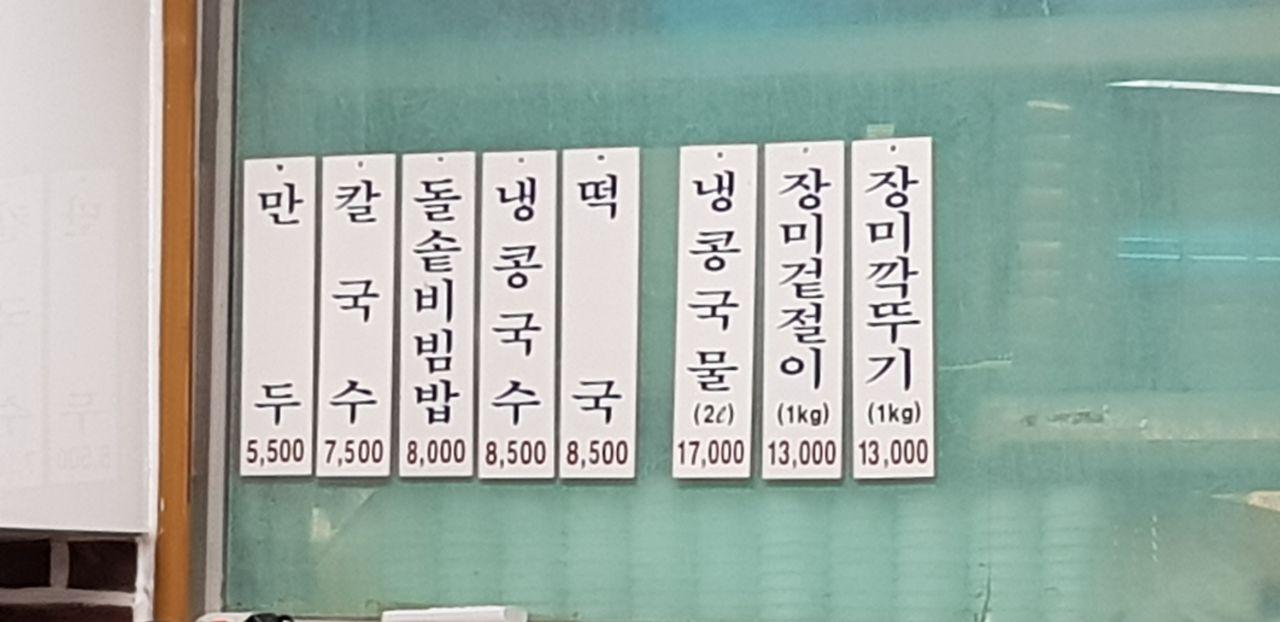 만두
5,500
칼국수
7,500
돌솥비빔밥
8,000
냉콩국수
8,500
떡국
8,500
냉콩국물
(2ℓ)
17,000
장미겉절이
(1kg)
13,000
장미깍뚜기
(1kg)
13,000